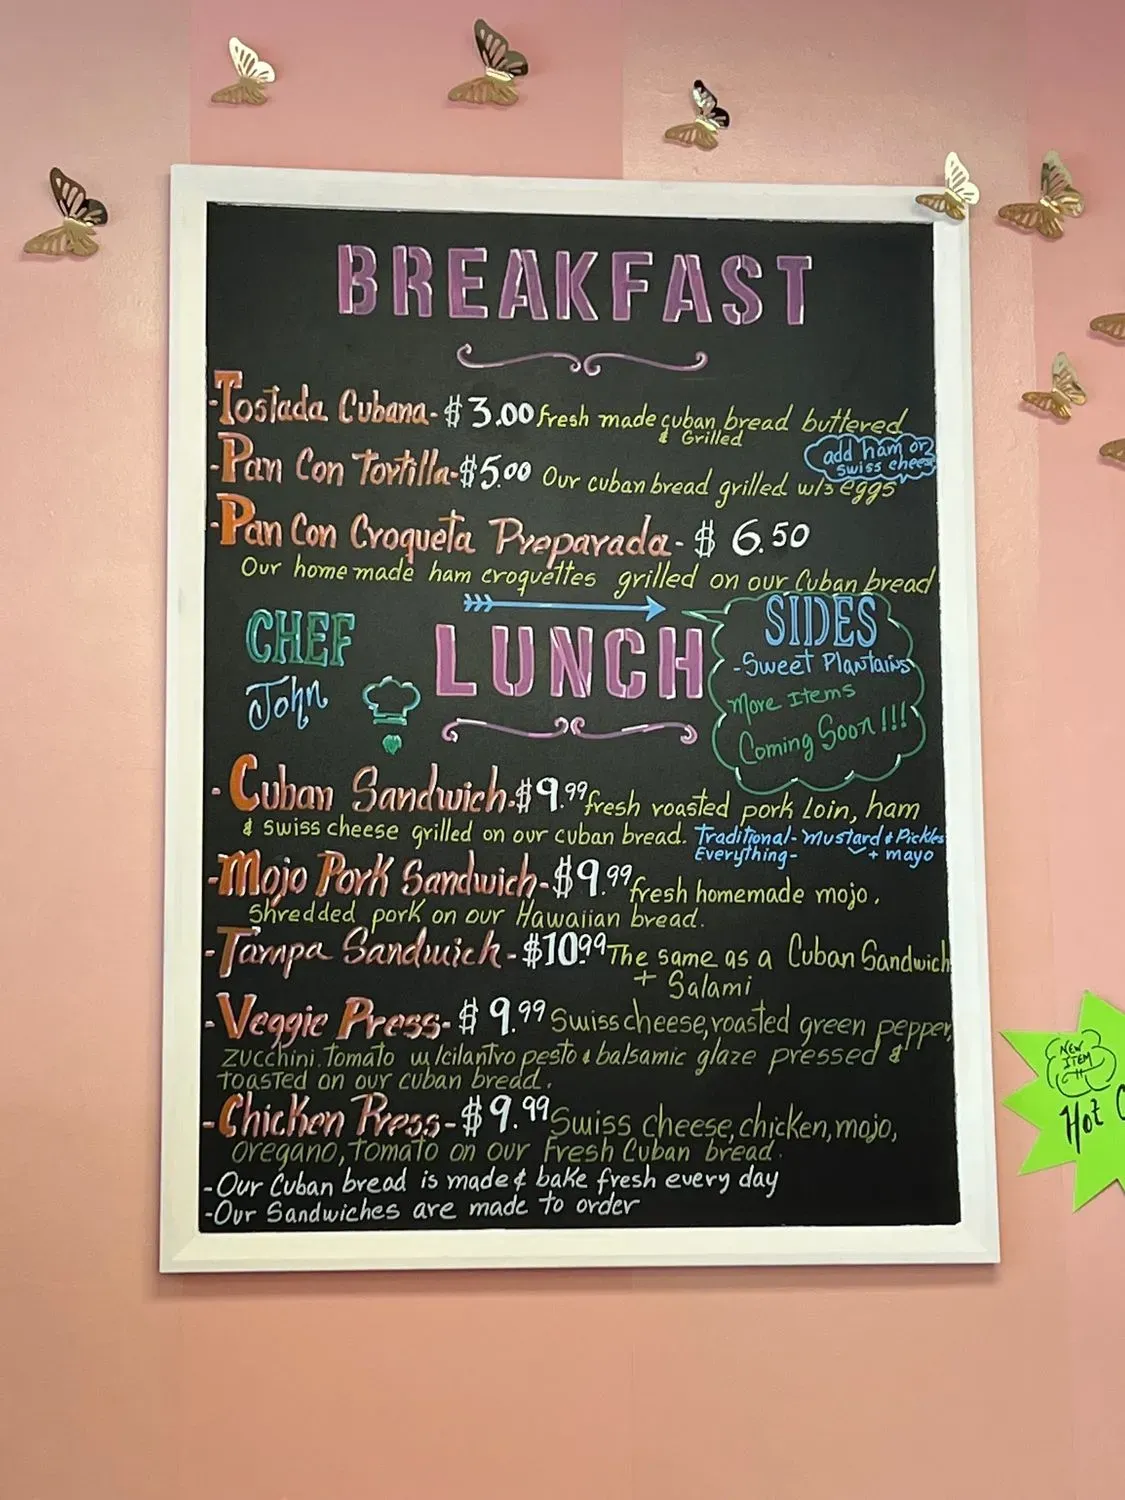 BREAKFAST
-Tostada Cubana-$3.00 fresh made cuban bread buttered
& Grilled
add ham or
swiss cheese
-Pan Con Tortilla-$5.00 Our cuban bread grilled w/3 eggs
-Pan Con Croqueta Preparada-$ 6.50
Our home made ham croquettes grilled on our Cuban bread
CHEF
John
LUNCH
SIDES
-Sweet Plantains
More Items
Coming Soon!!!
- Cuban Sandwich-$9.99 fresh roasted pork Loin, ham
& swiss cheese grilled on our cuban bread. Traditional- Mustard & Pickles
Everything- + mayo
-Mojo Pork Sandwich-$9.99 fresh homemade mojo,
Shredded pork on our Hawaiian bread.
-Tampa Sandwich-$10.99 The same as a Cuban Sandwich
+ Salami
-Veggie Press-$9.99 Swiss cheese, roasted green pepper,
zucchini. tomato w/cilantro pesto & balsamic glaze pressed &
toasted on our cuban bread.
-Chicken Press-$9.99 Swiss cheese, chicken, mojo,
oregano, tomato on our Fresh Cuban bread.
-Our Cuban bread is made & bake fresh every day
-Our Sandwiches are made to order
NEW
ITEM
Hot